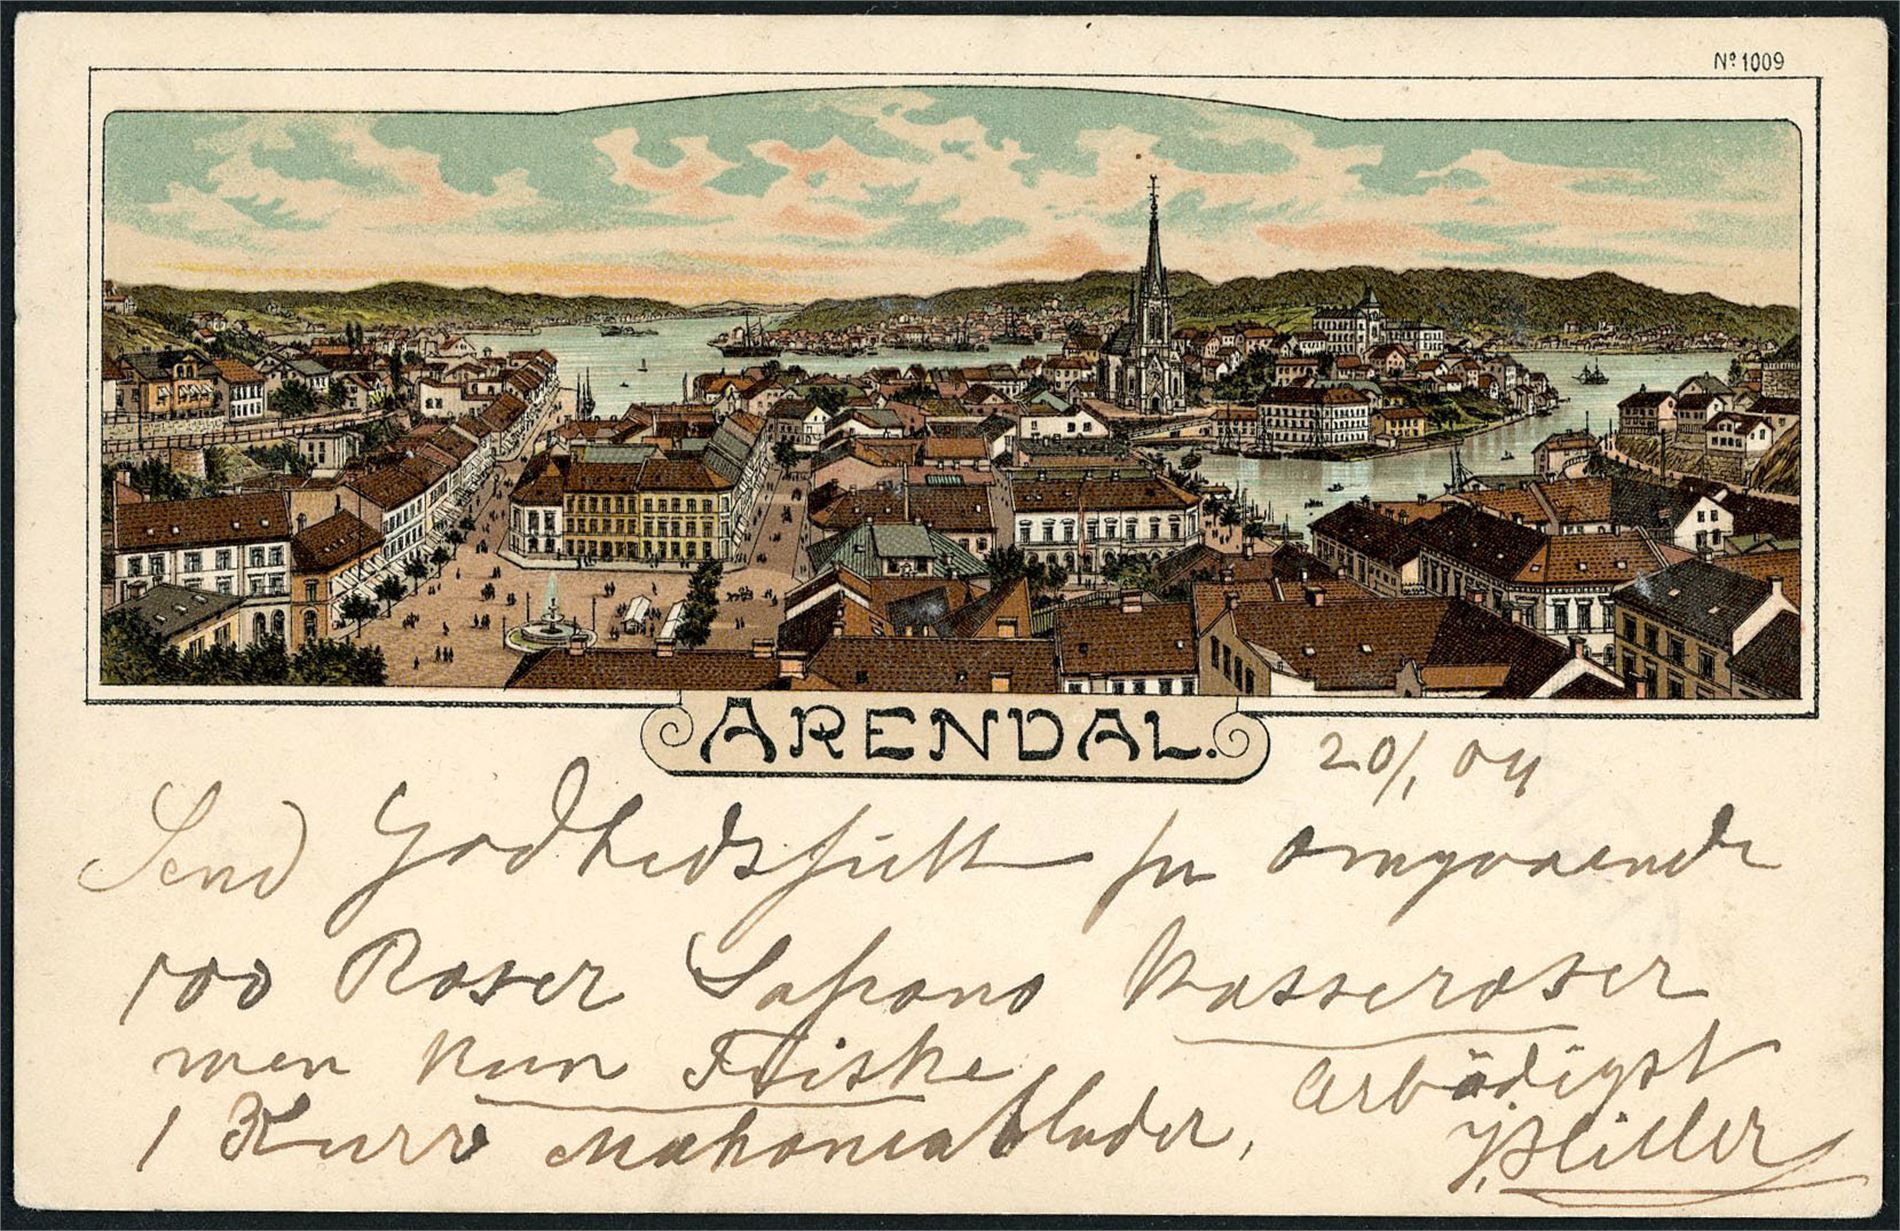 No 1009
ARENDAL.
20/1 04
Send Godhedsfullt pr omgaaende
100 Roser Safrano Kasseroser
men kun Friske
1 Kurv Mahoniablader,
Arbödigst
Hiller